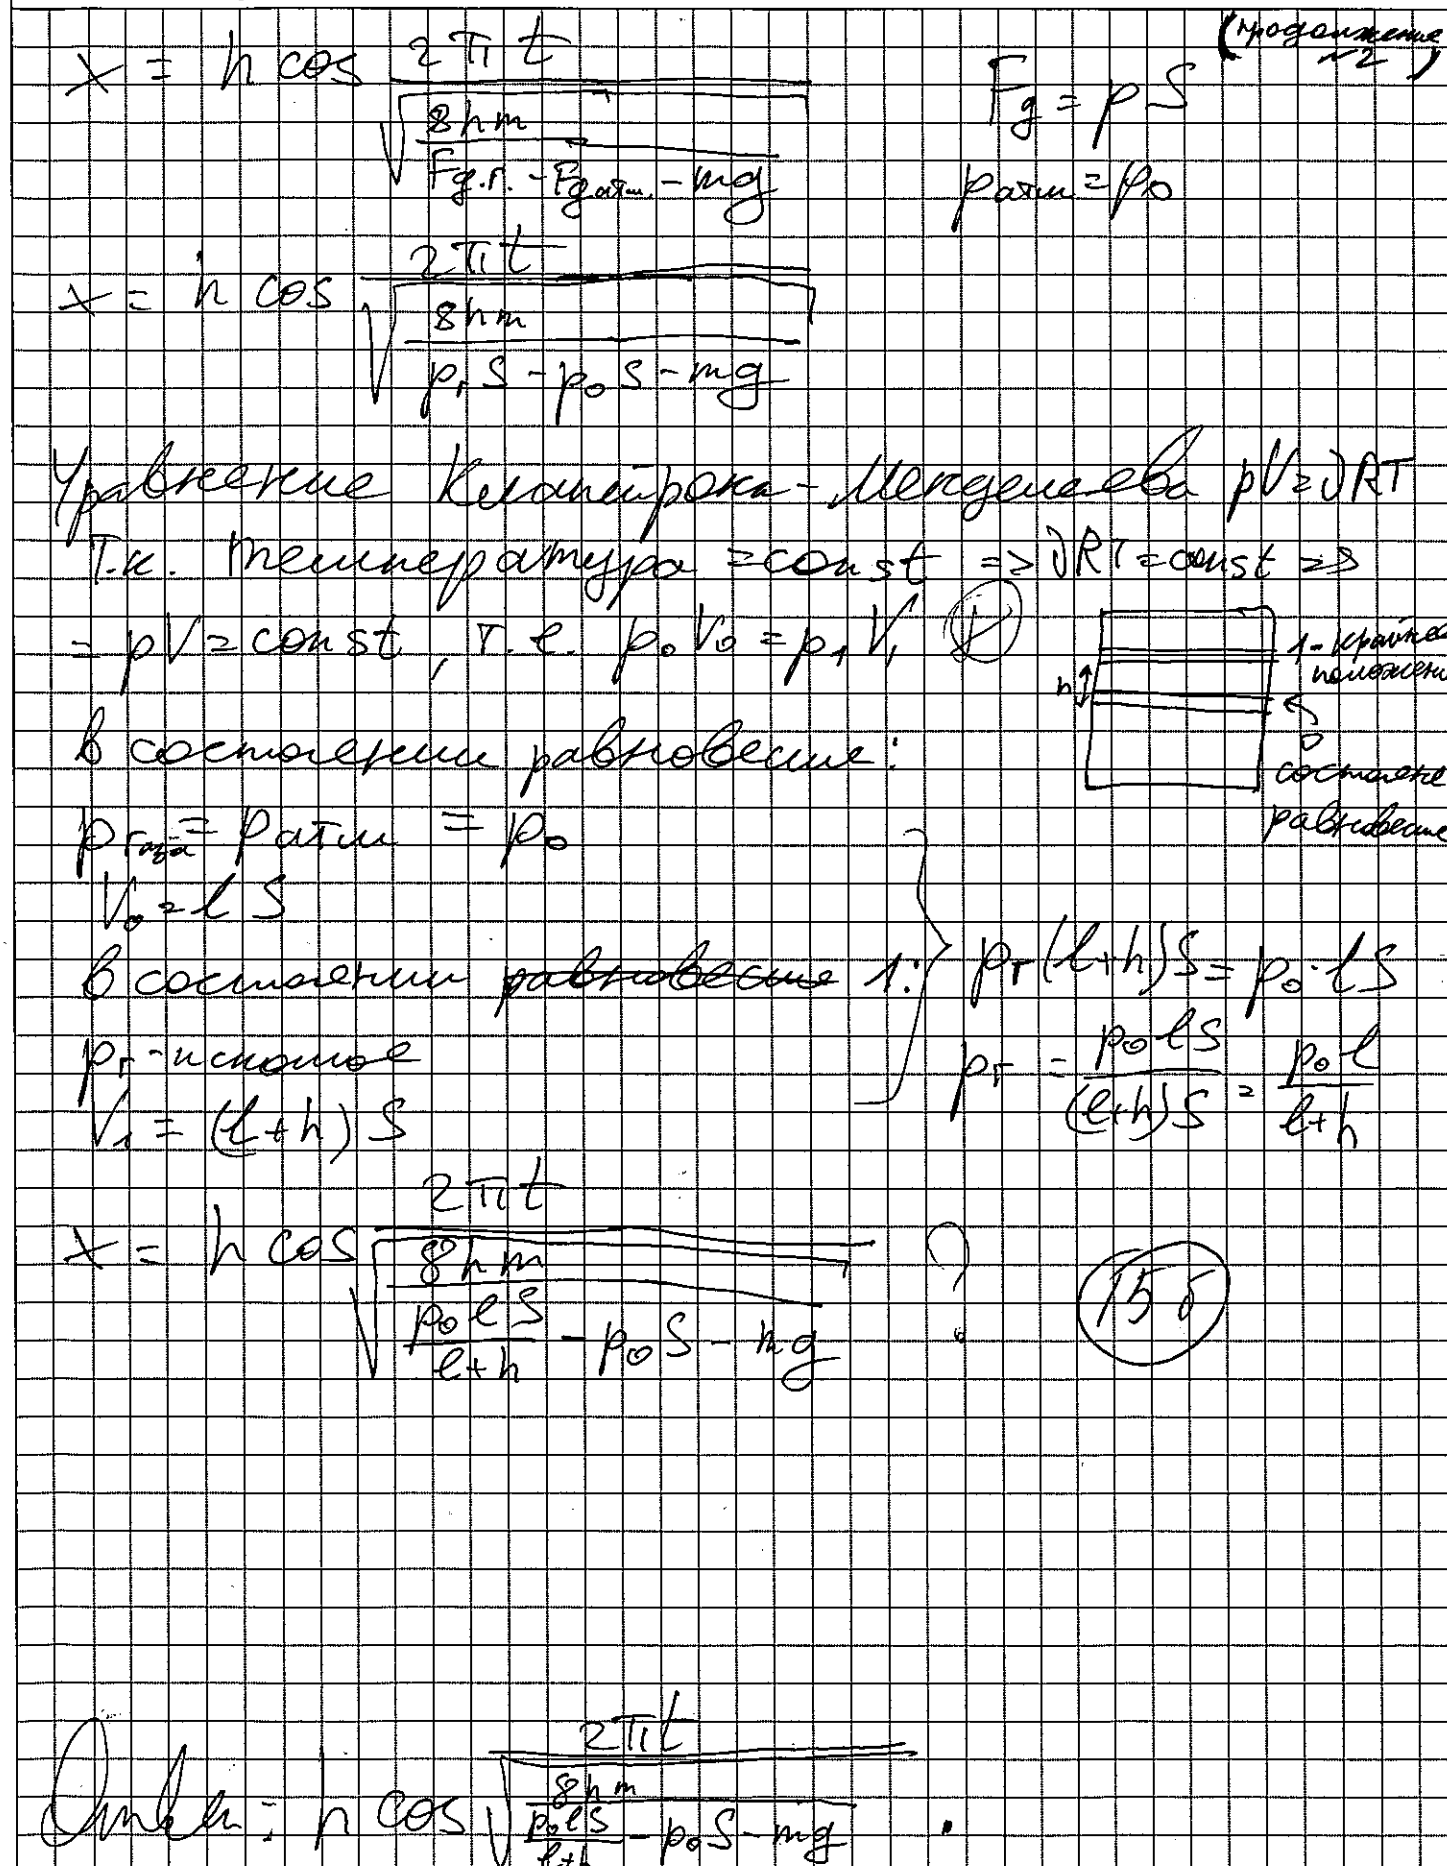 (продолжение №2)
x = h cos 2πt / √(8hm / (Fд.г. - Fд атм. - mg))
Fд = pS
pатм = p₀
x = h cos 2πt / √(8hm / (pгS - p₀S - mg))
Уравнение Клапейрона-Менделеева pV = νRT
Т.к. температура = const => νRT = const =>
= pV = const, т.е. p₀V₀ = p₁V₁
1 - крайнее положени
h
0
состояние равновесие
В состоянии равновесие:
pгаза = pатм = p₀
V₀ = lS
В состоянии равновесие 1:
pг - искомое
V₁ = (l+h)S
pг(l+h)S = p₀·lS
pг = p₀lS / (l+h)S = p₀l / l+h
x = h cos 2πt / √(8hm / (p₀lS / l+h - p₀S - mg)) ?
15 б
Ответ: h cos 2πt / √(8hm / (p₀lS / l+h - p₀S - mg)).